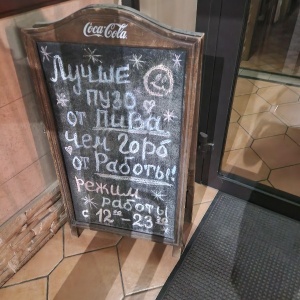 Coca-Cola
Лучше
пузо
от пива
чем горб
от работы!
режим
работы
с 12⁰⁰ – 23⁰⁰